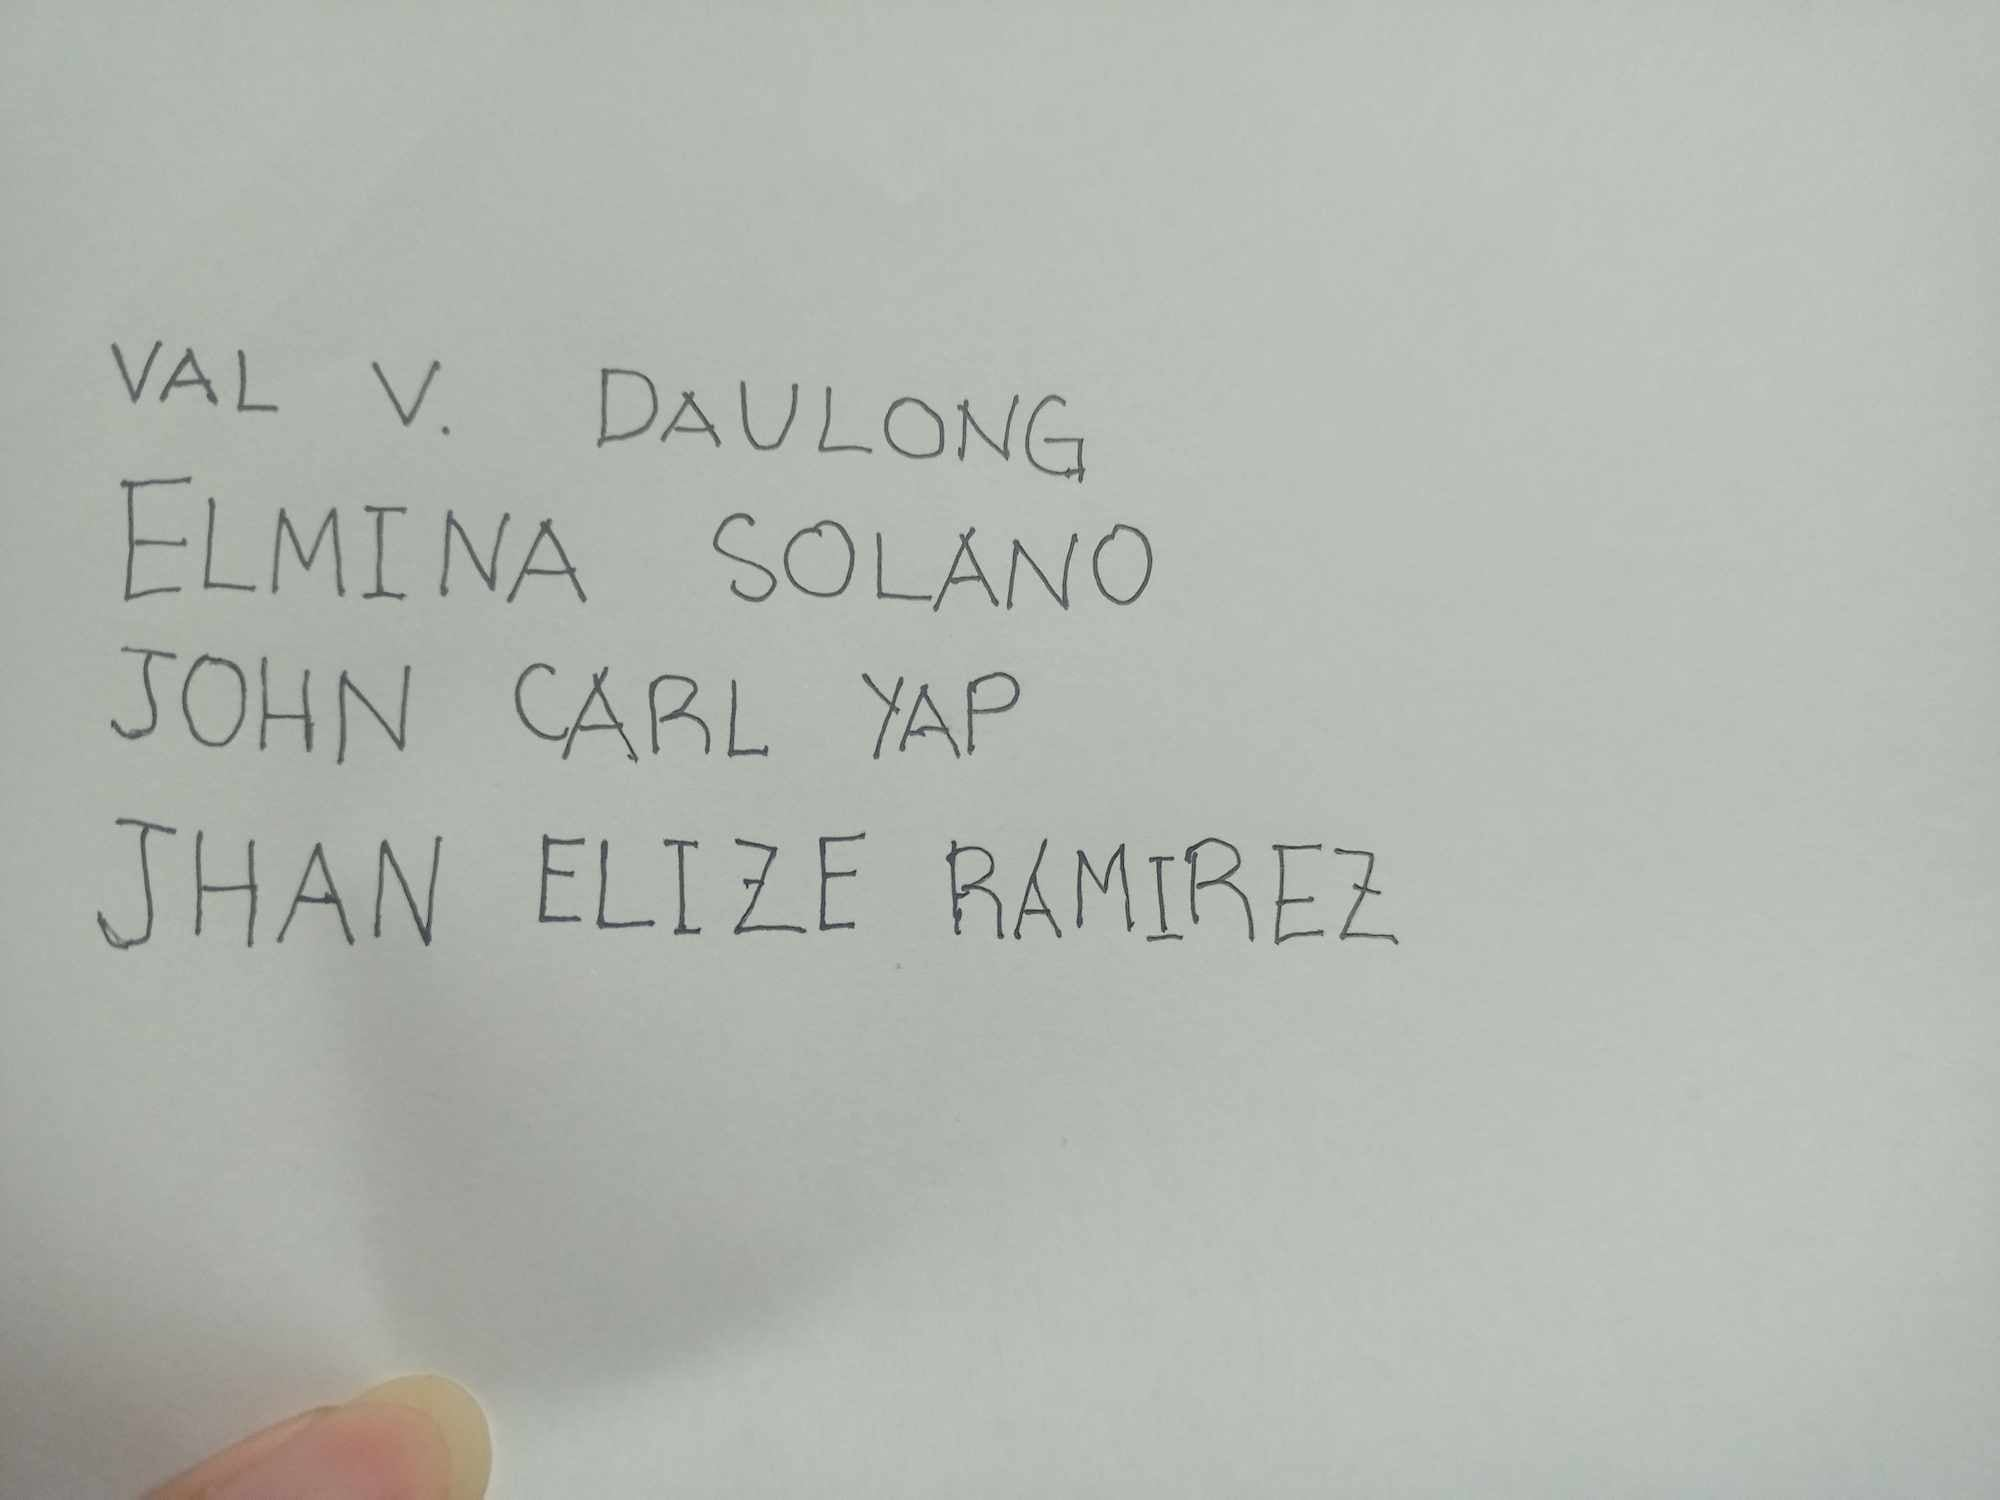 VAL V. DAULONG
ELMINA SOLANO
JOHN CARL YAP
JHAN ELIZE RAMIREZ